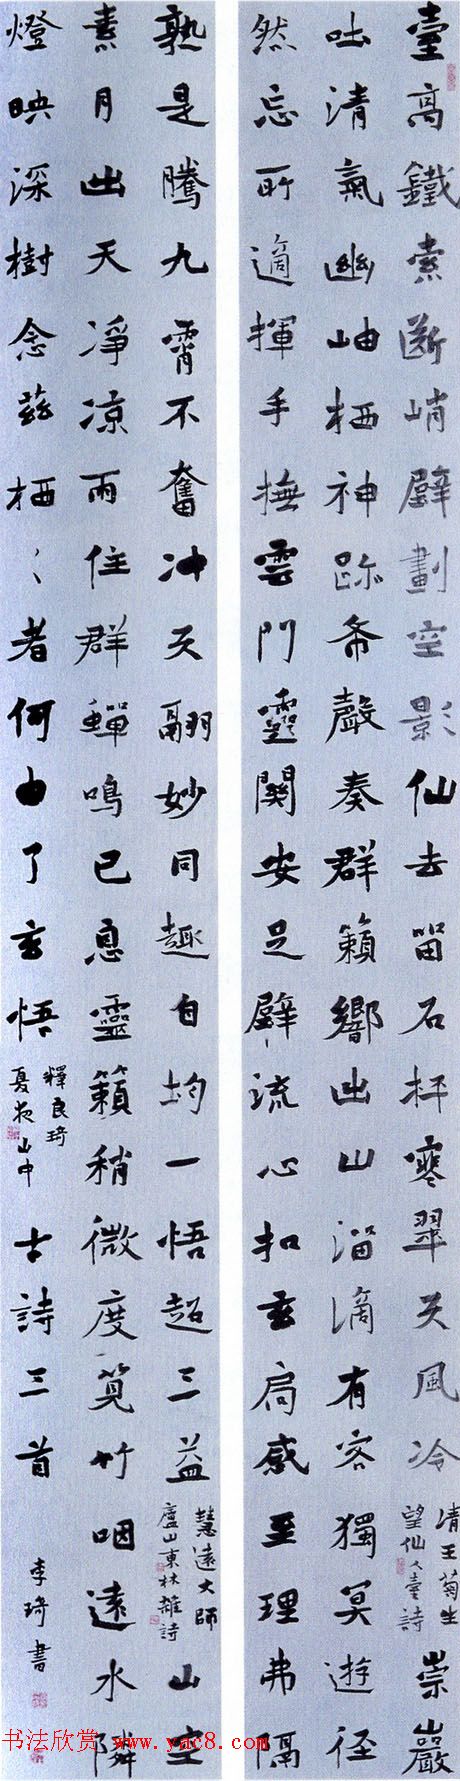 臺高鐵索斷峭壁劃空影仙去留石枰寒翠天風冷
清王菊生
望仙人臺詩
崇巖
吐清氣幽岫栖神跡希聲奏群籟響出山溜滴有客獨冥遊徑
然忘所適揮手撫雲門靈關安足辟流心扣玄扃感至理弗隔
孰是騰九霄不奮冲天翮妙同趣自均一悟超三益
慧遠大師
廬山東林雜詩
山空
素月出天淨凉雨住群蟬鳴已息靈籟稍微度筧竹咽遠水隣
燈映深樹念茲栖々者何由了玄悟
釋良琦
夏夜山中
古詩三首
李琦書
书法欣赏 www.yac8.com